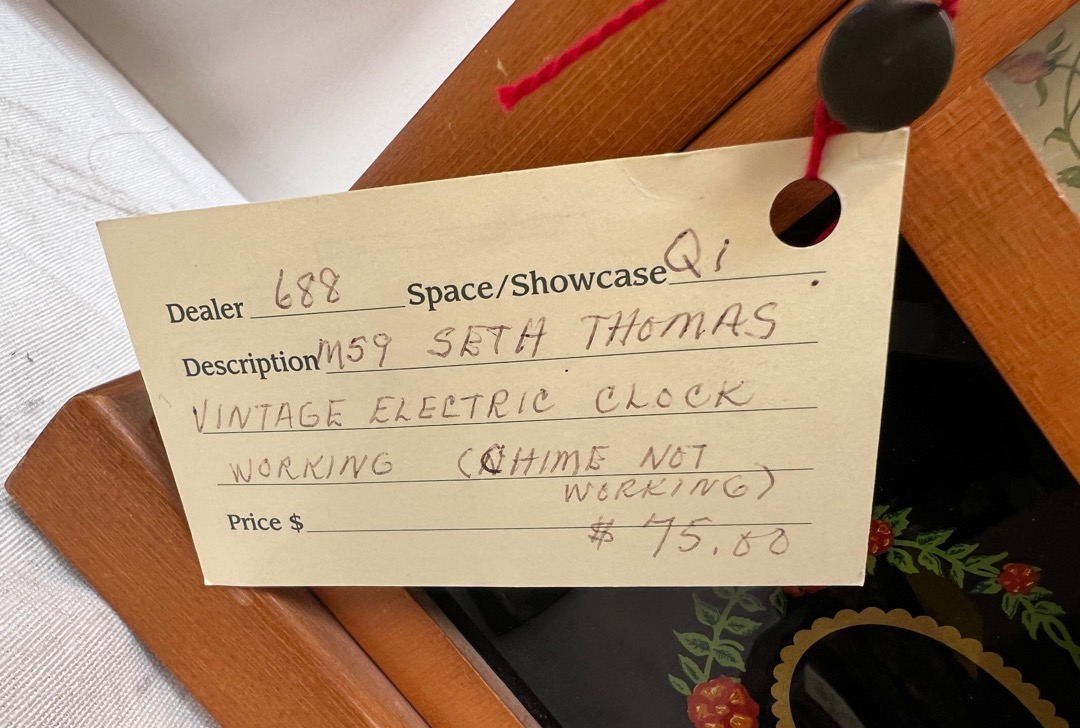 Dealer 688 Space/Showcase Qi
Description M59 SETH THOMAS
VINTAGE ELECTRIC CLOCK
WORKING (CHIME NOT
WORKING)
Price $ $ 75.00